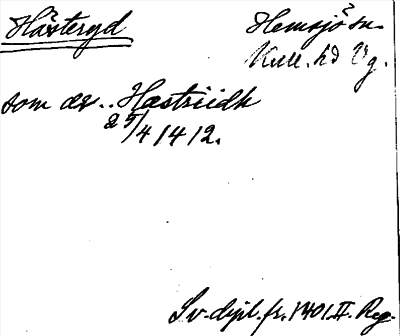 Hästeryd
Hemsjö sn.
Kull. hd Vg.
som der.. Hæstriidh
25/4 1412.
Sv. dipl. fr. 1401 II. Reg.